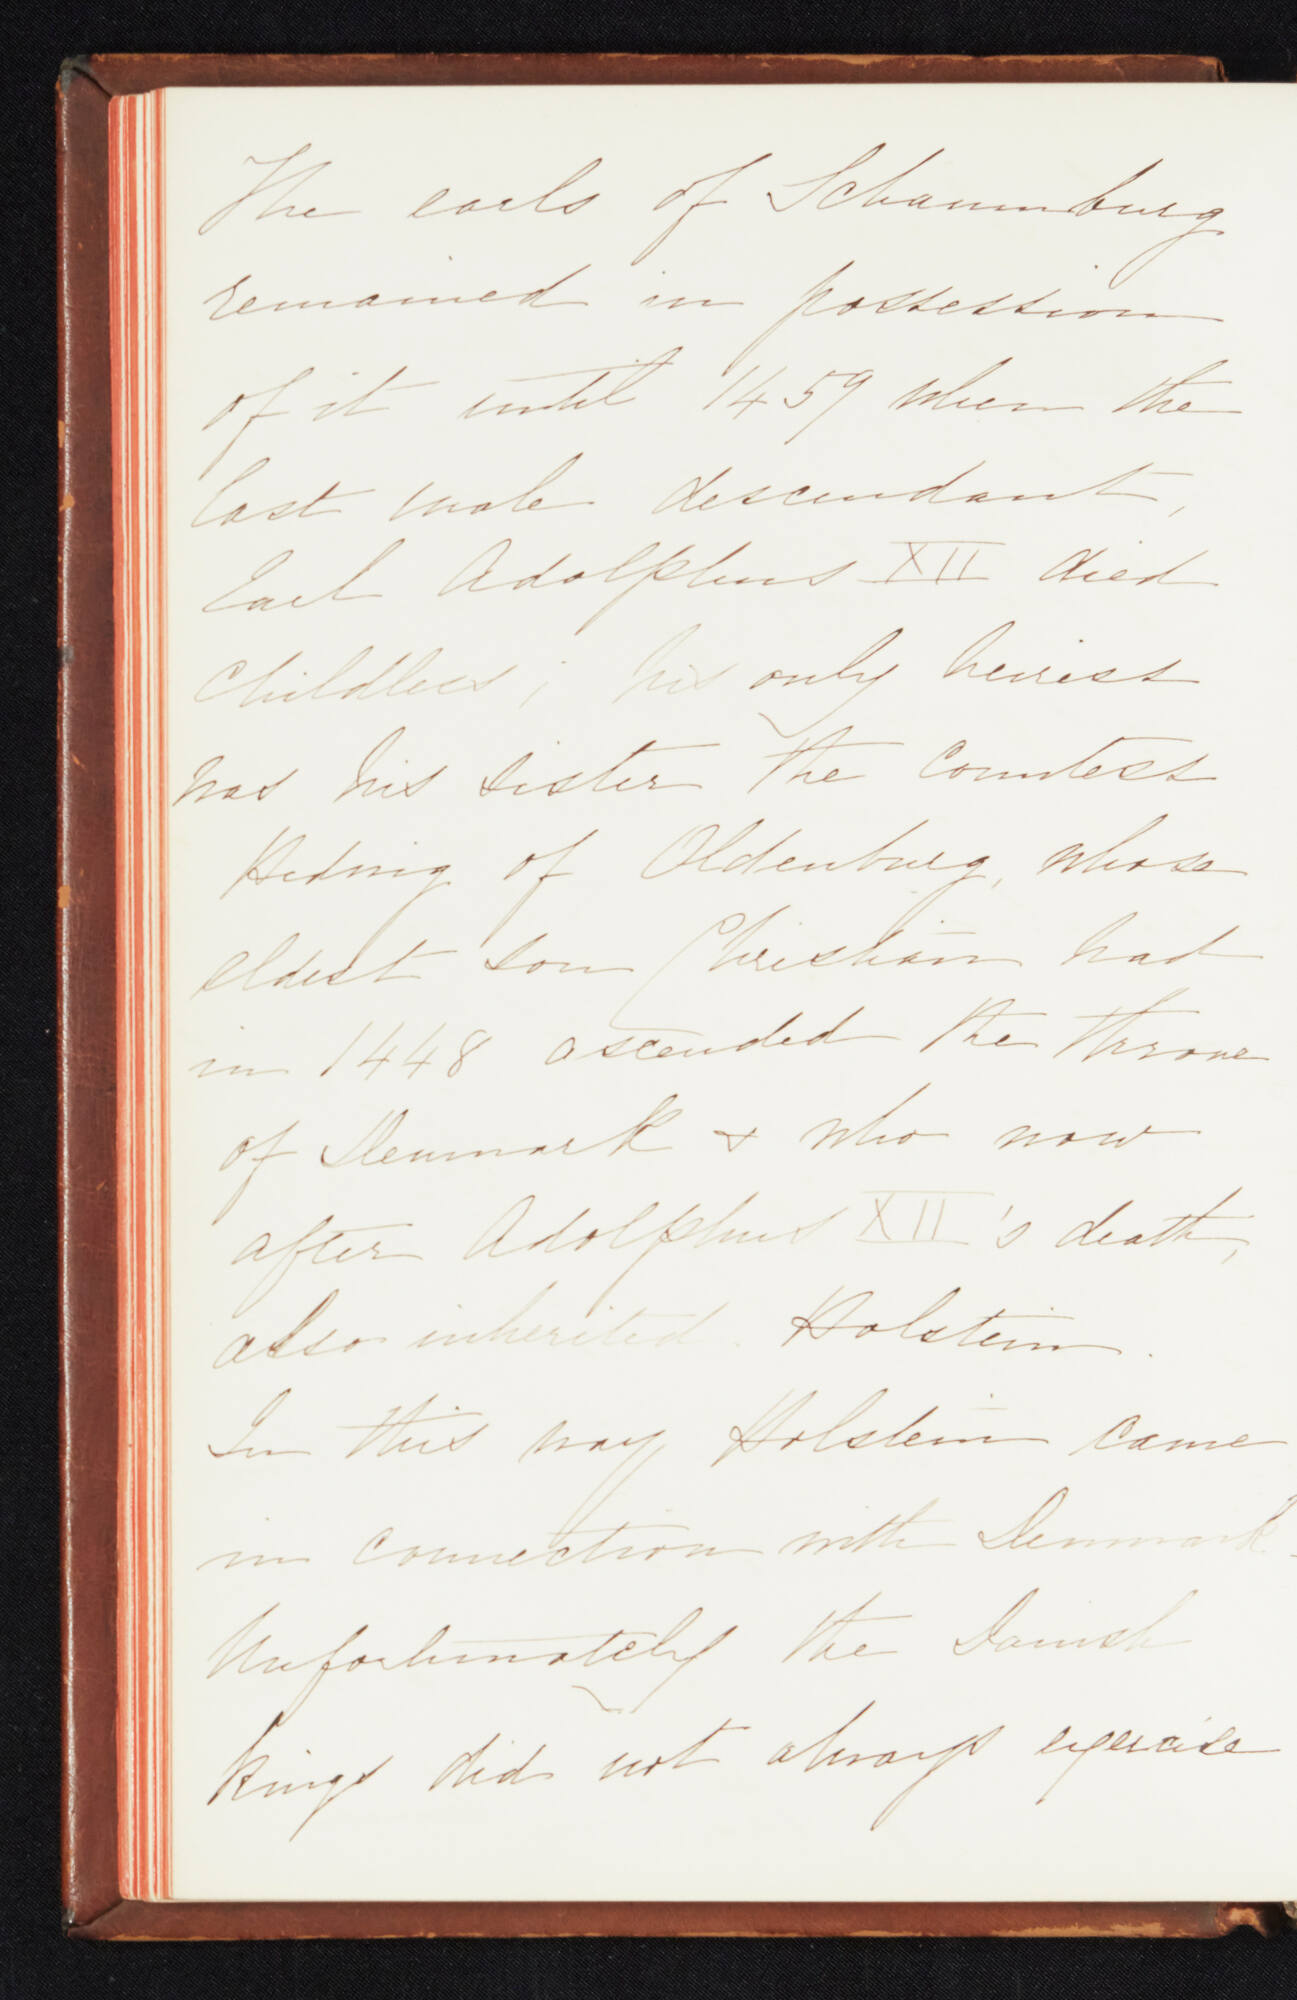 The earls of Schaumburg
remained in possession
of it until 1459 when the
last male descendant,
Earl Adolphus XII died
childless; his only heiress
was his sister the countess
Hedwig of Oldenburg, whose
eldest son Christian had
in 1448 ascended the throne
of Denmark & who now
after Adolphus XII's death,
also inherited Holstein.
In this way Holstein came
in connection with Denmark.
Unfortunately the Danish
kings did not always exercise